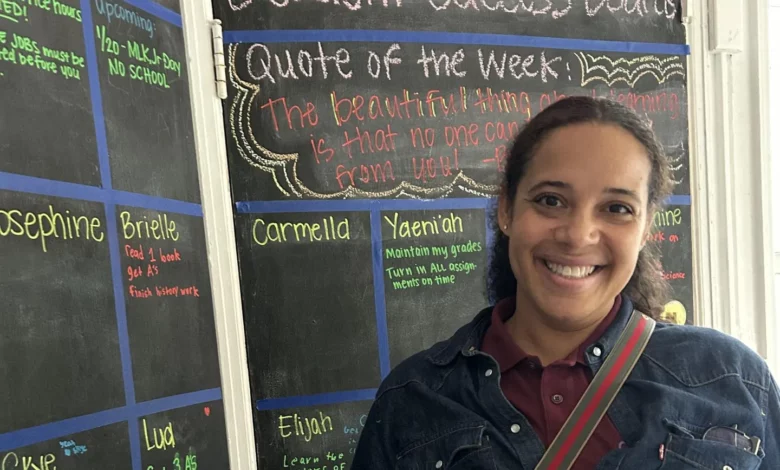 ice hours
ED!
JOBS must be
ted before you
upcoming:
1/20 - MLK Jr. Day
NO SCHOOL
Success Board
Quote of the Week:
The beautiful thing learning
is that no one can
from you!
osephine
Brielle
read 1 book
get A's
finish history work
Carmella
Yaeniah
Maintain my grades
Turn in ALL assign-
ments on time
mine
rk on
Science
Skye
Lua
Get 3 A's
Elijah
Learn the